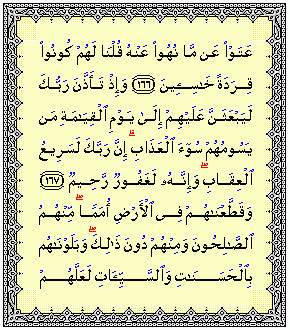 عَتَوْاْ عَن مَّا نُهُواْ عَنْهُ قُلْنَا لَهُمْ كُونُواْ
قِرَدَةً خَٰسِـِٔينَ ١٦٦ وَإِذْ تَأَذَّنَ رَبُّكَ
لَيَبْعَثَنَّ عَلَيْهِمْ إِلَىٰ يَوْمِ ٱلْقِيَٰمَةِ مَن
يَسُومُهُمْ سُوٓءَ ٱلْعَذَابِ ۗ إِنَّ رَبَّكَ لَسَرِيعُ
ٱلْعِقَابِ ۖ وَإِنَّهُۥ لَغَفُورٌ رَّحِيمٌ ١٦٧
وَقَطَّعْنَٰهُمْ فِى ٱلْأَرْضِ أُمَمًا ۖ مِّنْهُمُ
ٱلصَّٰلِحُونَ وَمِنْهُمْ دُونَ ذَٰلِكَ ۖ وَبَلَوْنَٰهُم
بِٱلْحَسَنَٰتِ وَٱلسَّيِّـَٔاتِ لَعَلَّهُمْ